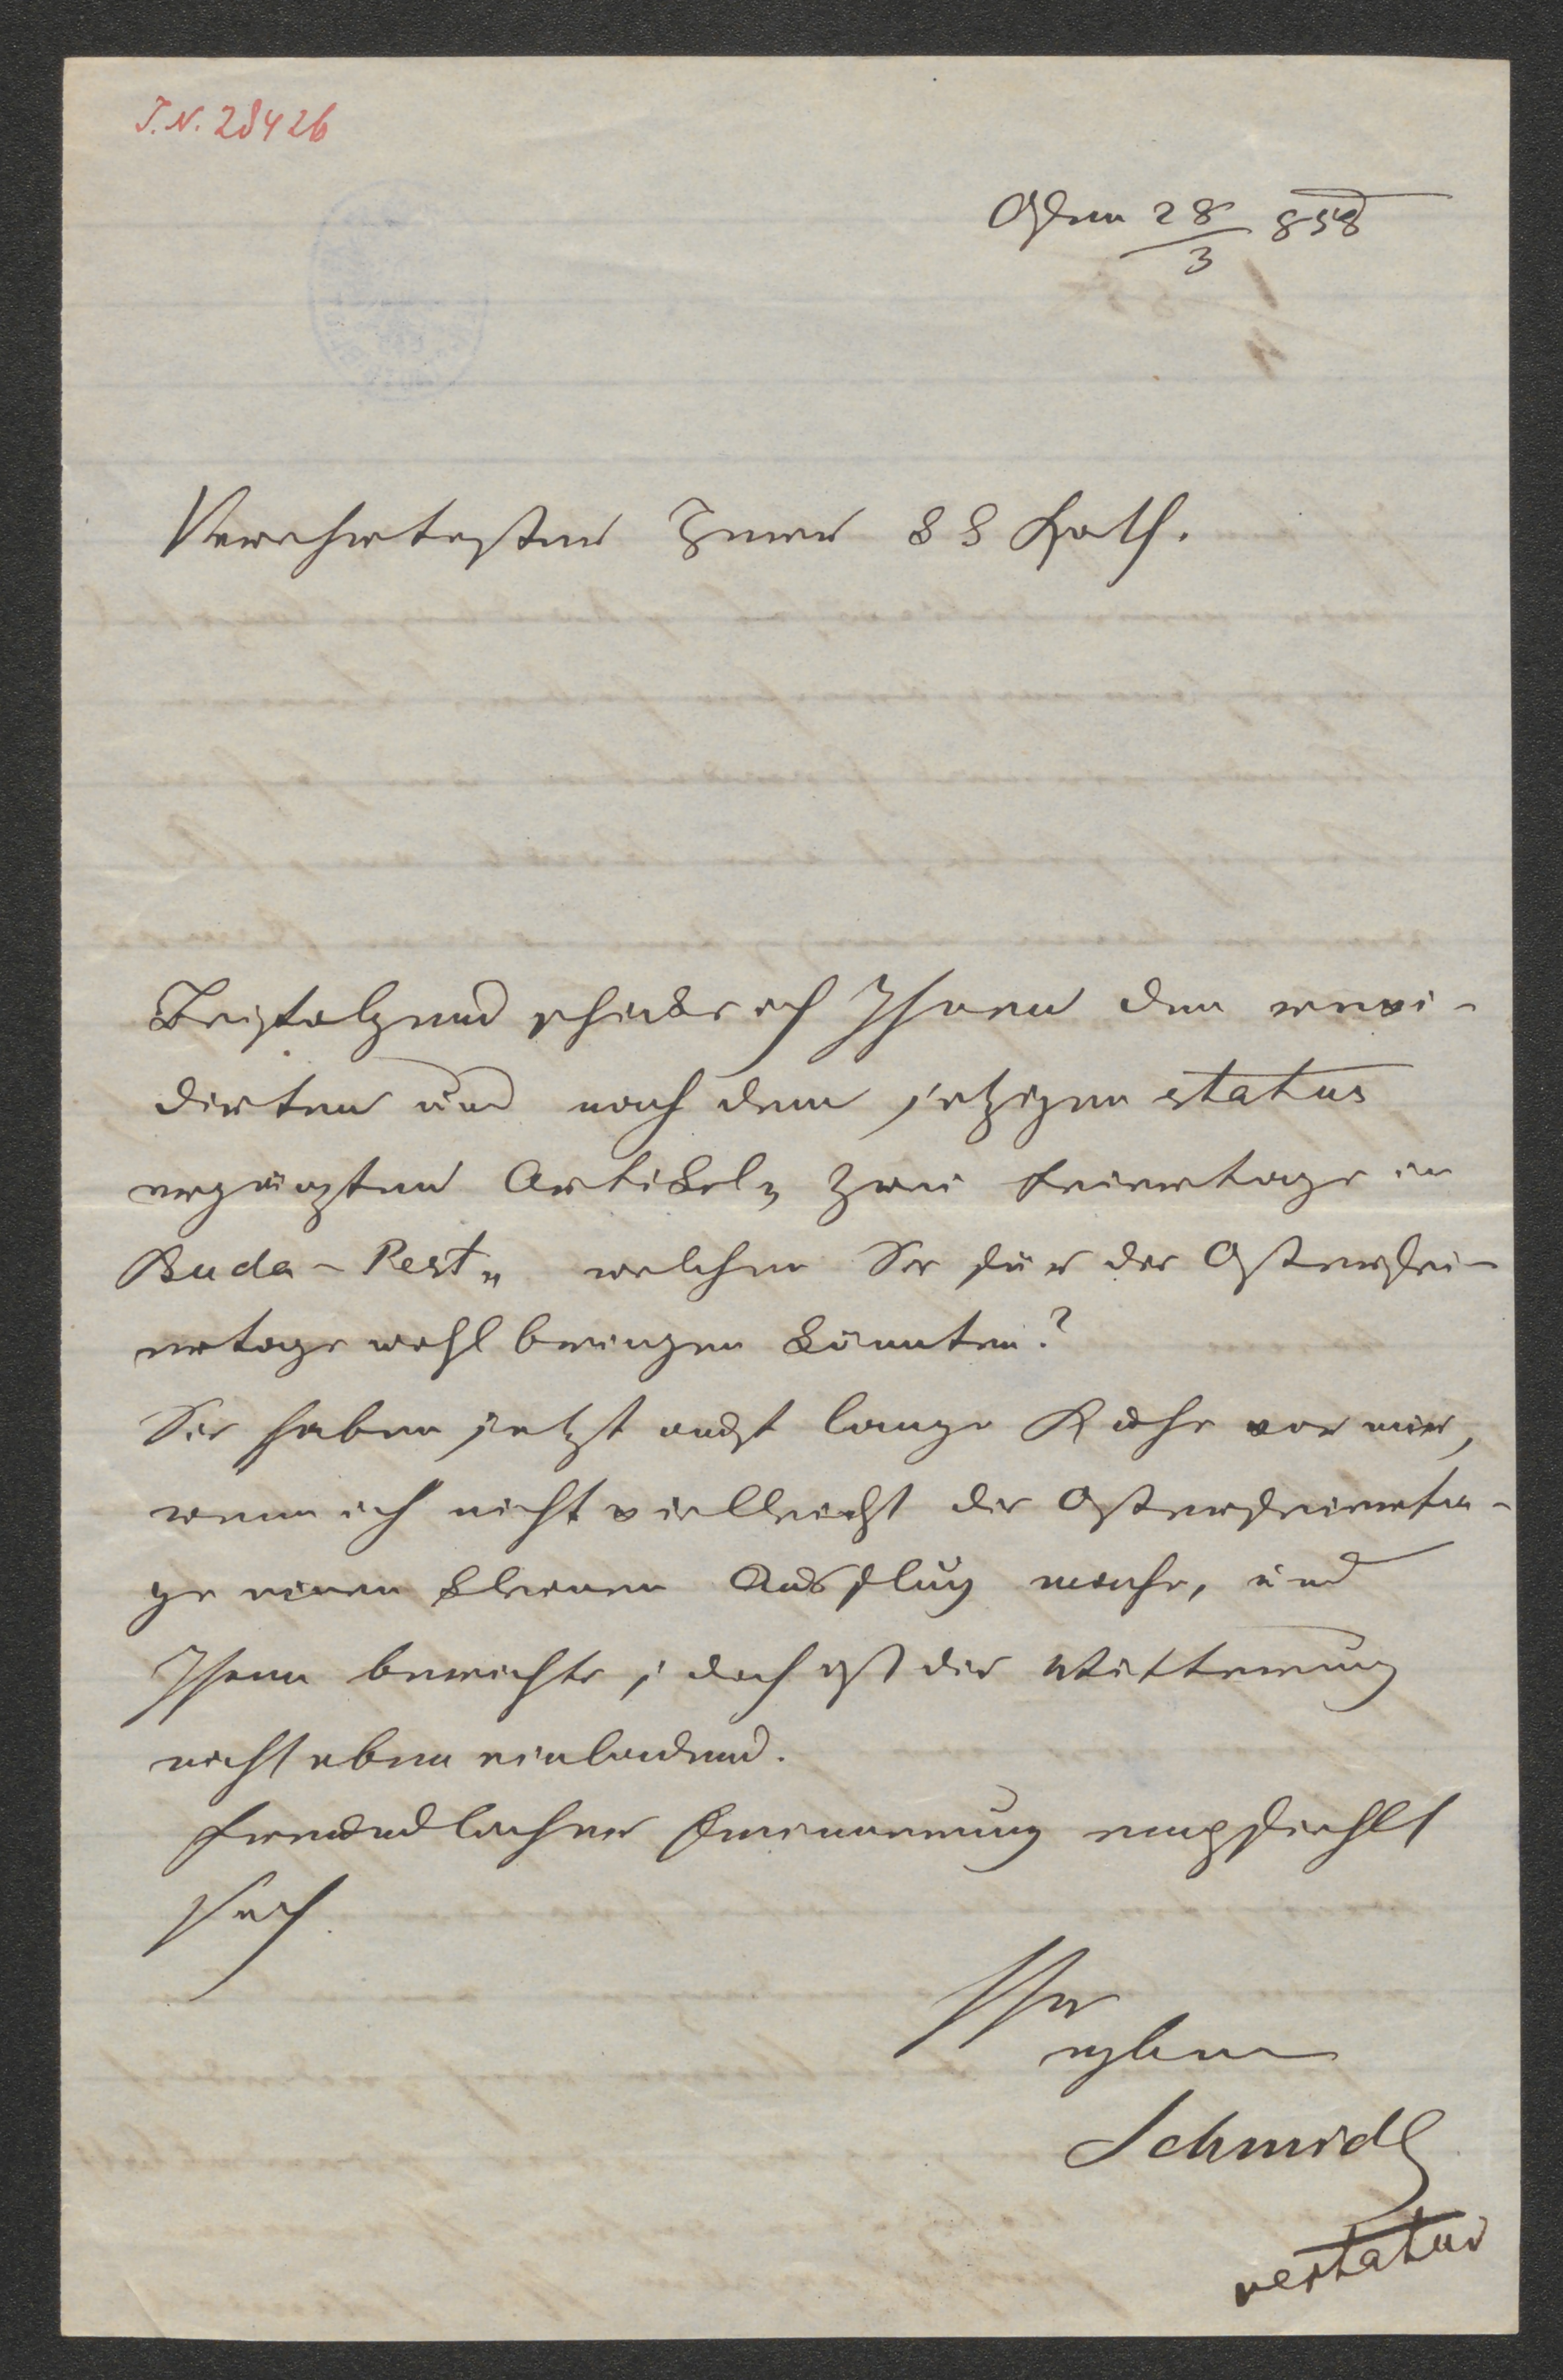 I.N. 28426
Ofen 28/3 858
Verehrtester Herr KK Rath.
Beifolgend schicke ich Ihnen den revi-
dirten und nach dem jetzigen status
ergänzten Artikel „ Zwei Feiertage in
Buda-Pest„ welchen Sie für die Osterfei-
ertage wohl bringen könnten?
Sie haben jetzt recht lange Ruhe vor mir,
wenn ich nicht vielleicht die Osterfeierta-
ge einen kleinen Ausflug mache, und
Ihnen berichte; doch ist die Witterung
nicht eben einladend.
Freundlicher Erinnerung empfiehlt
sich
Ihr
ergbner
Schmidl
vertatur